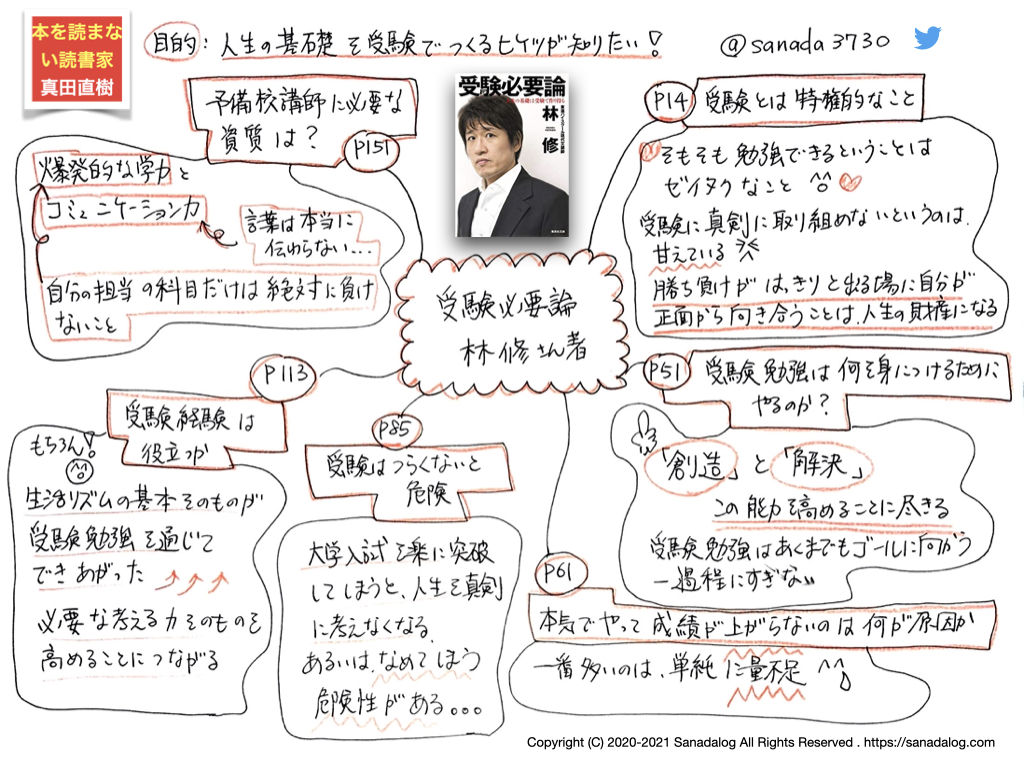 本を読まな
い読書家
真田直樹
目的：人生の基礎を受験でつくるヒケツが知りたい！
@sanada3730
受験必要論
人生の基礎は受験で作り得る
林
修
受験必要論
林修さん著
P14
受験とは特権的なこと
そもそも勉強できるということは
ゼイタクなこと
受験に真剣に取り組めないというのは、
甘えている
勝ち負けがはっきりと出る場に自分が
正面から向き合うことは、人生の財産になる
P51
受験勉強は何を身につけるために
やるのか？
「創造」と「解決」
この能力を高めることに尽きる
受験勉強はあくまでもゴールに向かう
一過程にすぎない
P61
本気でやって成績が上がらないのは何が原因か
一番多いのは、単純に量不足
P85
受験はつらくないと
危険
大学入試を楽に突破
してしまうと、人生を真剣
に考えなくなる、
あるいは、なめてしまう
危険性がある。。。
P113
受験経験は
役立つか
もちろん！
生活リズムの基本そのものが
受験勉強を通じて
できあがった
必要な考える力そのものを
高めることにつながる
予備校講師に必要な
資質は？
P151
爆発的な学力と
コミュニケーション力
言葉は本当に
伝わらない...
自分の担当の科目だけは絶対に負け
ないこと
Copyright (C) 2020-2021 Sanadalog All Rights Reserved . https://sanadalog.com